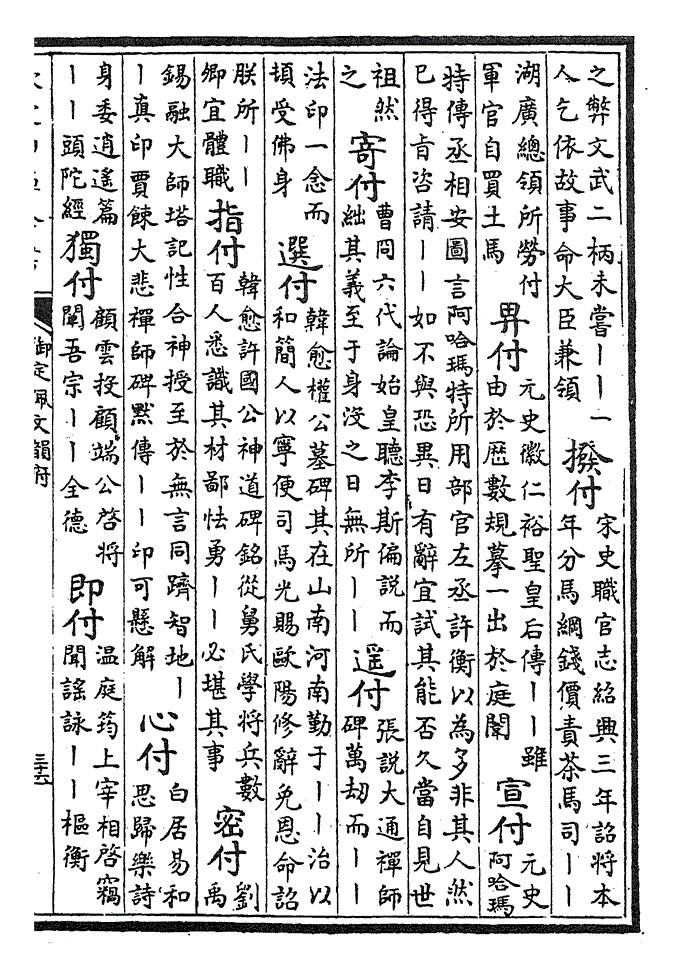 之弊文武二柄未嘗丨丨一
人乞依故事命大臣兼領
撥付
宋史職官志紹興三年詔將本
年分馬綱錢價責茶馬司丨丨
湖廣總領所勞付
軍官自買土馬
畀付
元史徽仁裕聖皇后傳丨丨雖
由於歴數規摹一出於庭闈
宣付
元史
阿哈瑪
特傳丞相安圖言阿哈瑪特所用部官左丞許衡以為多非其人然
已得旨咨請丨丨如不與恐異日有辭宜試其能否久當自見世
祖然
之
寄付
曹冏六代論始皇聽李斯偏説而
絀其義至于身沒之日無所丨丨
遥付
張説大通禪師
碑萬劫而丨丨
法印一念而
頓受佛身
選付
韓愈權公墓碑其在山南河南勤于丨丨治以
和簡人以寧便司馬光賜歐陽修辭免恩命詔
朕所丨丨
卿宜體職
指付
韓愈許國公神道碑銘從舅氏學將兵數
百人悉識其材鄙怯勇丨丨必堪其事
密付
劉
禹
錫融大師塔記性合神授至於無言同躋智地丨
丨真印賈餗大悲禪師碑黙傳丨丨印可懸解
心付
白居易和
思歸樂詩
身委逍遙篇
丨丨頭陀經
獨付
顧雲投顧端公啓將
闡吾宗丨丨全德
即付
温庭筠上宰相啓竊
聞謠詠丨丨樞衡
御定佩文韻府